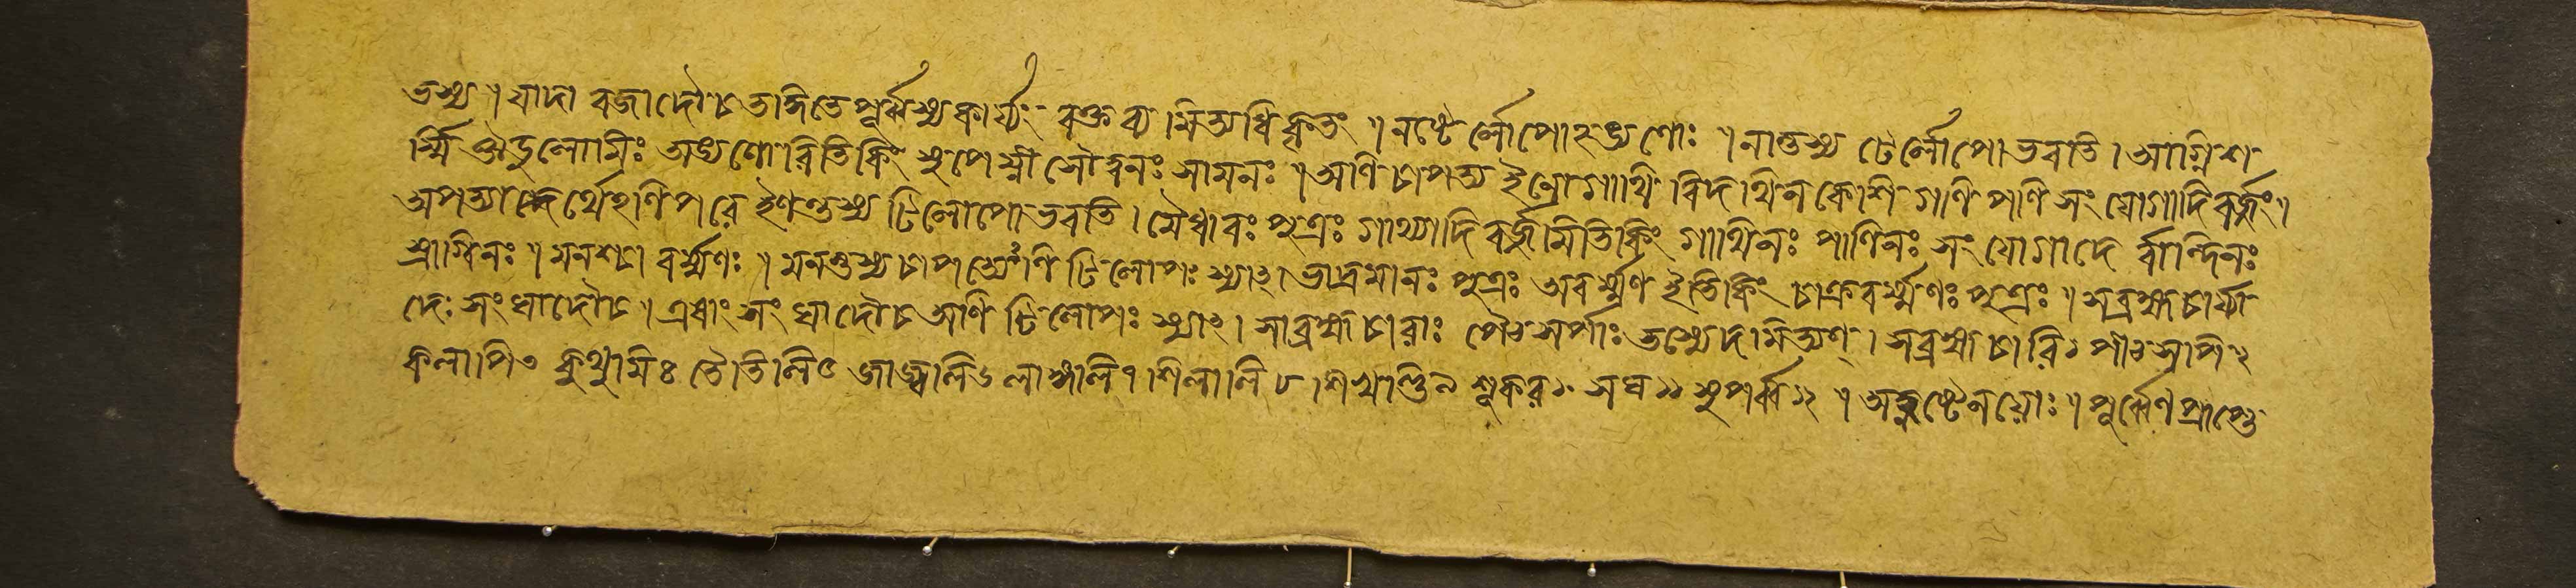 ভস্য ৷ যাদা বজাদৌ চ তদ্ধিতে পূর্ব্বস্য কার্য্যং বক্তব্যমিত্যধিকৃতং ৷ নষ্টের্লোপোঽড্যণোঃ ৷ নান্তস্য টের্লোপো ভবতি ৷ আগ্নিশ
র্ম্মি ঔডুলোমিঃ অড্যণোরিতি কিং সুপেম্নী সৌত্বনঃ সামনঃ ৷ অণি চাপত্য ইনোগাথি বিদথিন কেশি গণি পাণি সংযোগাদি বর্জ্জং ৷
অপত্যাদের্থেঽণি পরে ইণন্তস্য টিলোপো ভবতি ৷ মৈধাবঃ পুত্রঃ গাথ্যাদি বর্জ্জমিতি কিং গাথিনঃ পাণিনঃ সংযোগাদে র্ব্বান্দিনঃ
স্রাগ্বিনঃ ৷ মনশ্চা বর্ম্মণঃ ৷ মনন্তস্য চাপত্যেঽণি টিলোপঃ স্যাৎ ৷ ভাদ্রমানঃ পুত্রঃ অবর্ম্মণ ইতি কিং চাক্রবর্ম্মণঃ পুত্রঃ ৷ সব্রহ্মচার্য্যা
দেঃ সংঘাদৌ চ ৷ এষাং সংঘাদৌ চ অণি টিলোপঃ স্যাৎ ৷ সাব্রহ্মচারাঃ পৈঠসর্পাঃ তস্যেদমিত্যণ্ ৷ সব্রহ্মচারি১ পীঠসর্পি২
কলাপি৩ কুথুমি৪ তৈতিলি৫ জাজ্বলি৬ লাঙ্গলি৭ শিলালি৮ শিখণ্ডিন৯ শূকর১০ সঘ১১ সুপর্ব্ব১২ ৷ অহ্নষ্টৈনয়োঃ ৷ পূর্ব্বেণ প্রাপ্তে